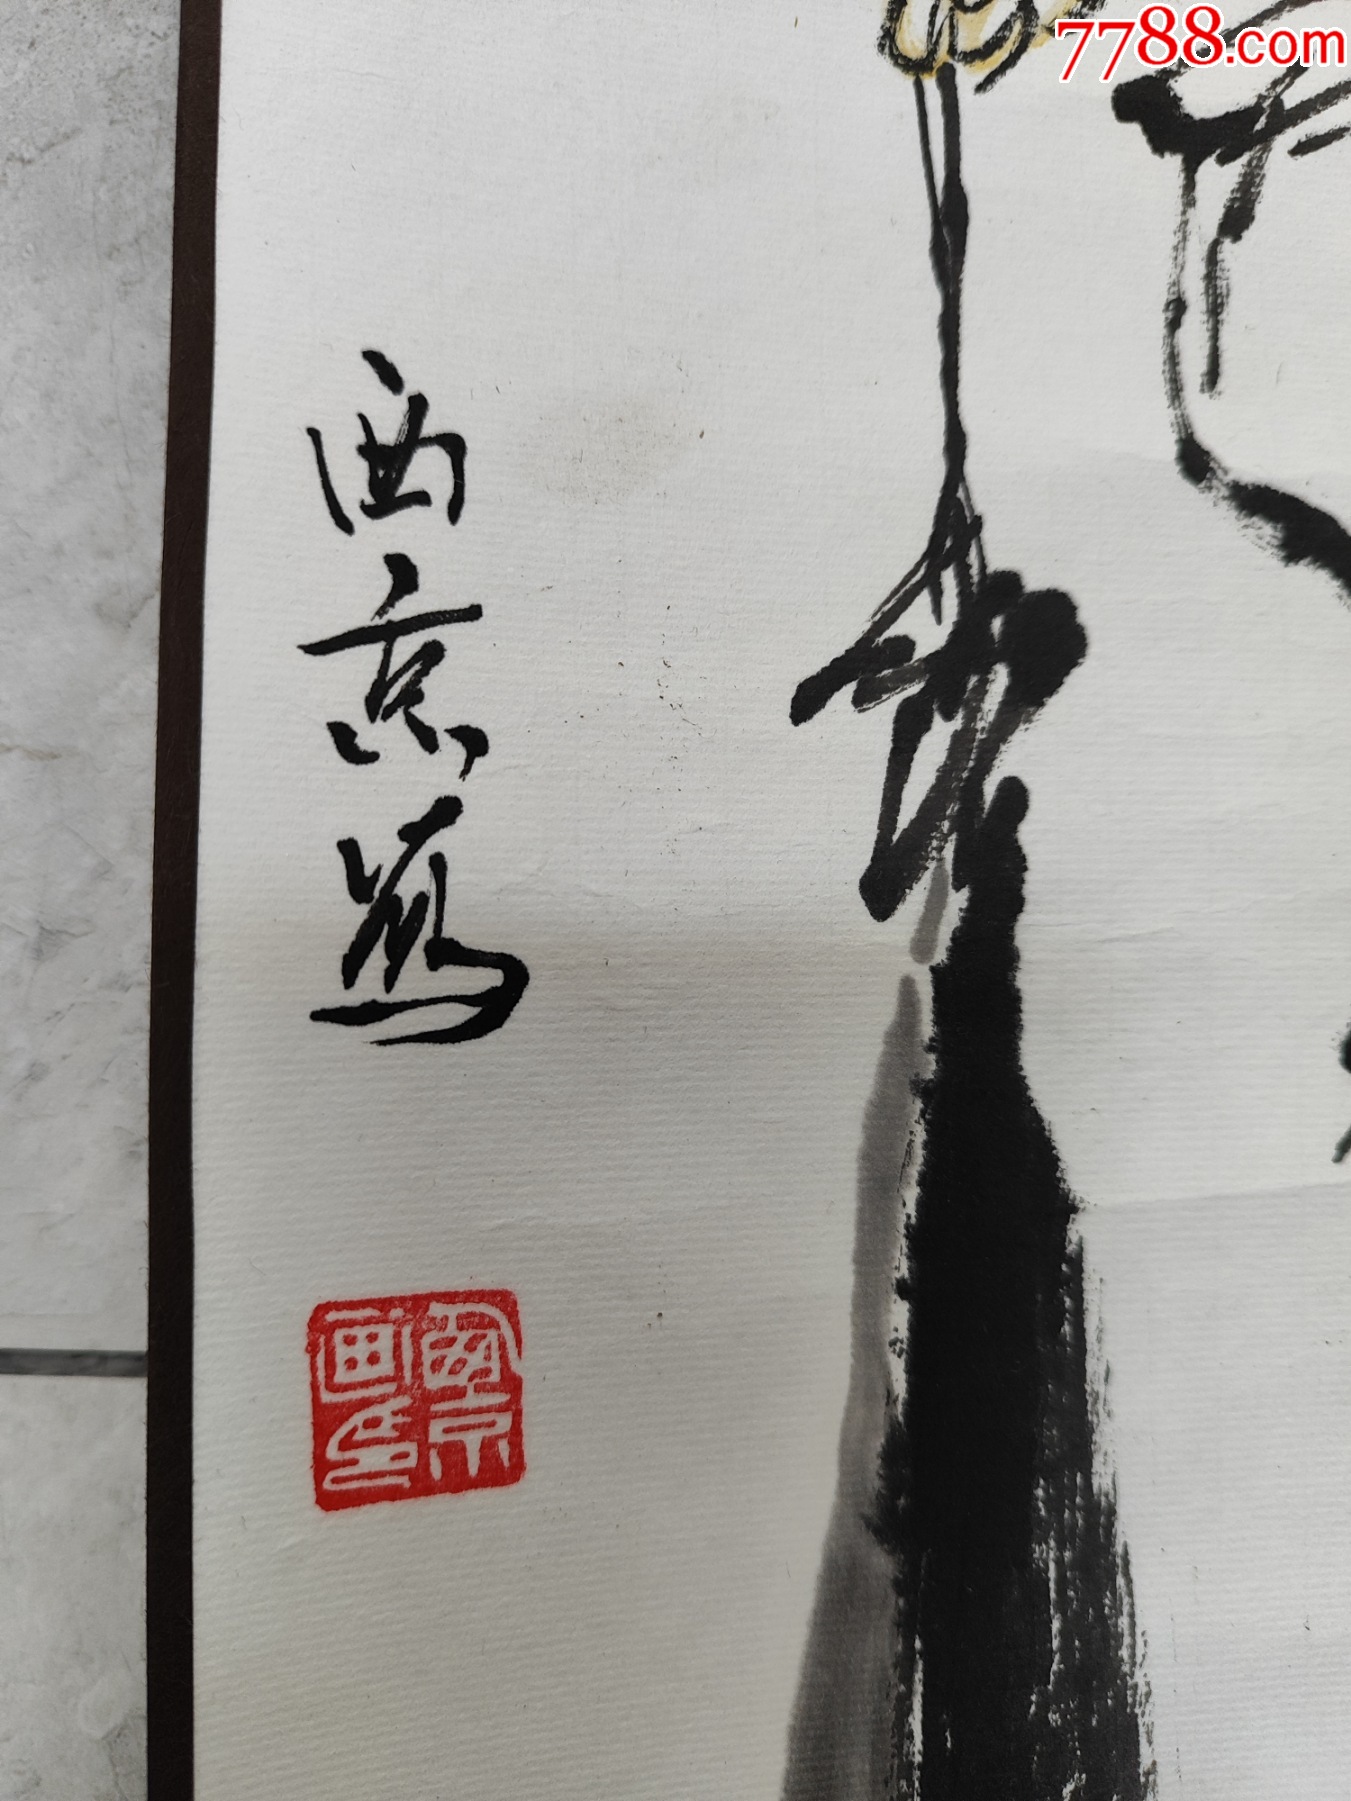 7788.com
西京写
西京画印